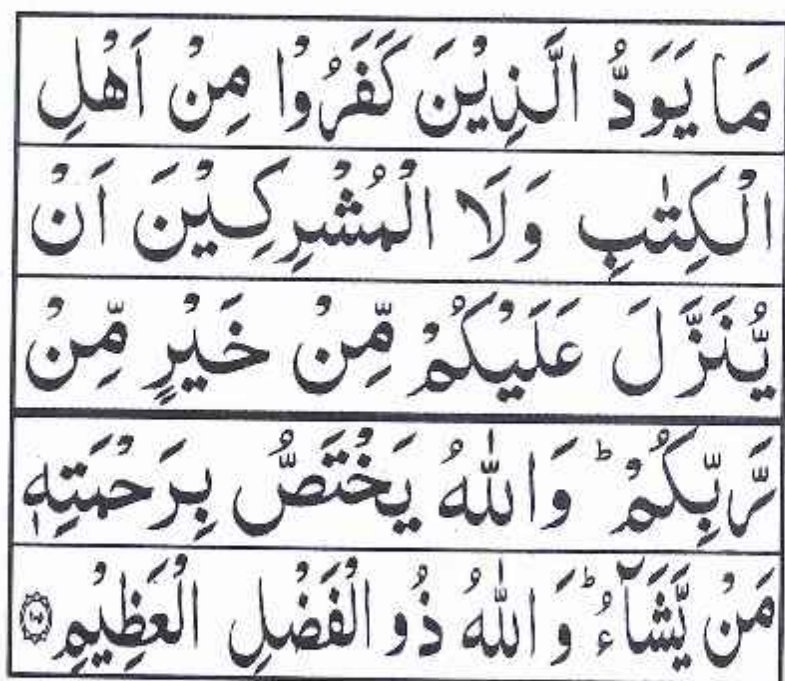 مَا يَوَدُّ الَّذِيْنَ كَفَرُوْا مِنْ اَهْلِ
الْكِتٰبِ وَلَا الْمُشْرِكِيْنَ اَنْ
يُّنَزَّلَ عَلَيْكُمْ مِّنْ خَيْرٍ مِّنْ
رَّبِّكُمْ ؕ وَاللّٰهُ يَخْتَصُّ بِرَحْمَتِهٖ
مَنْ يَّشَآءُ ؕ وَاللّٰهُ ذُو الْفَضْلِ الْعَظِيْمِ ۝۱۰۵